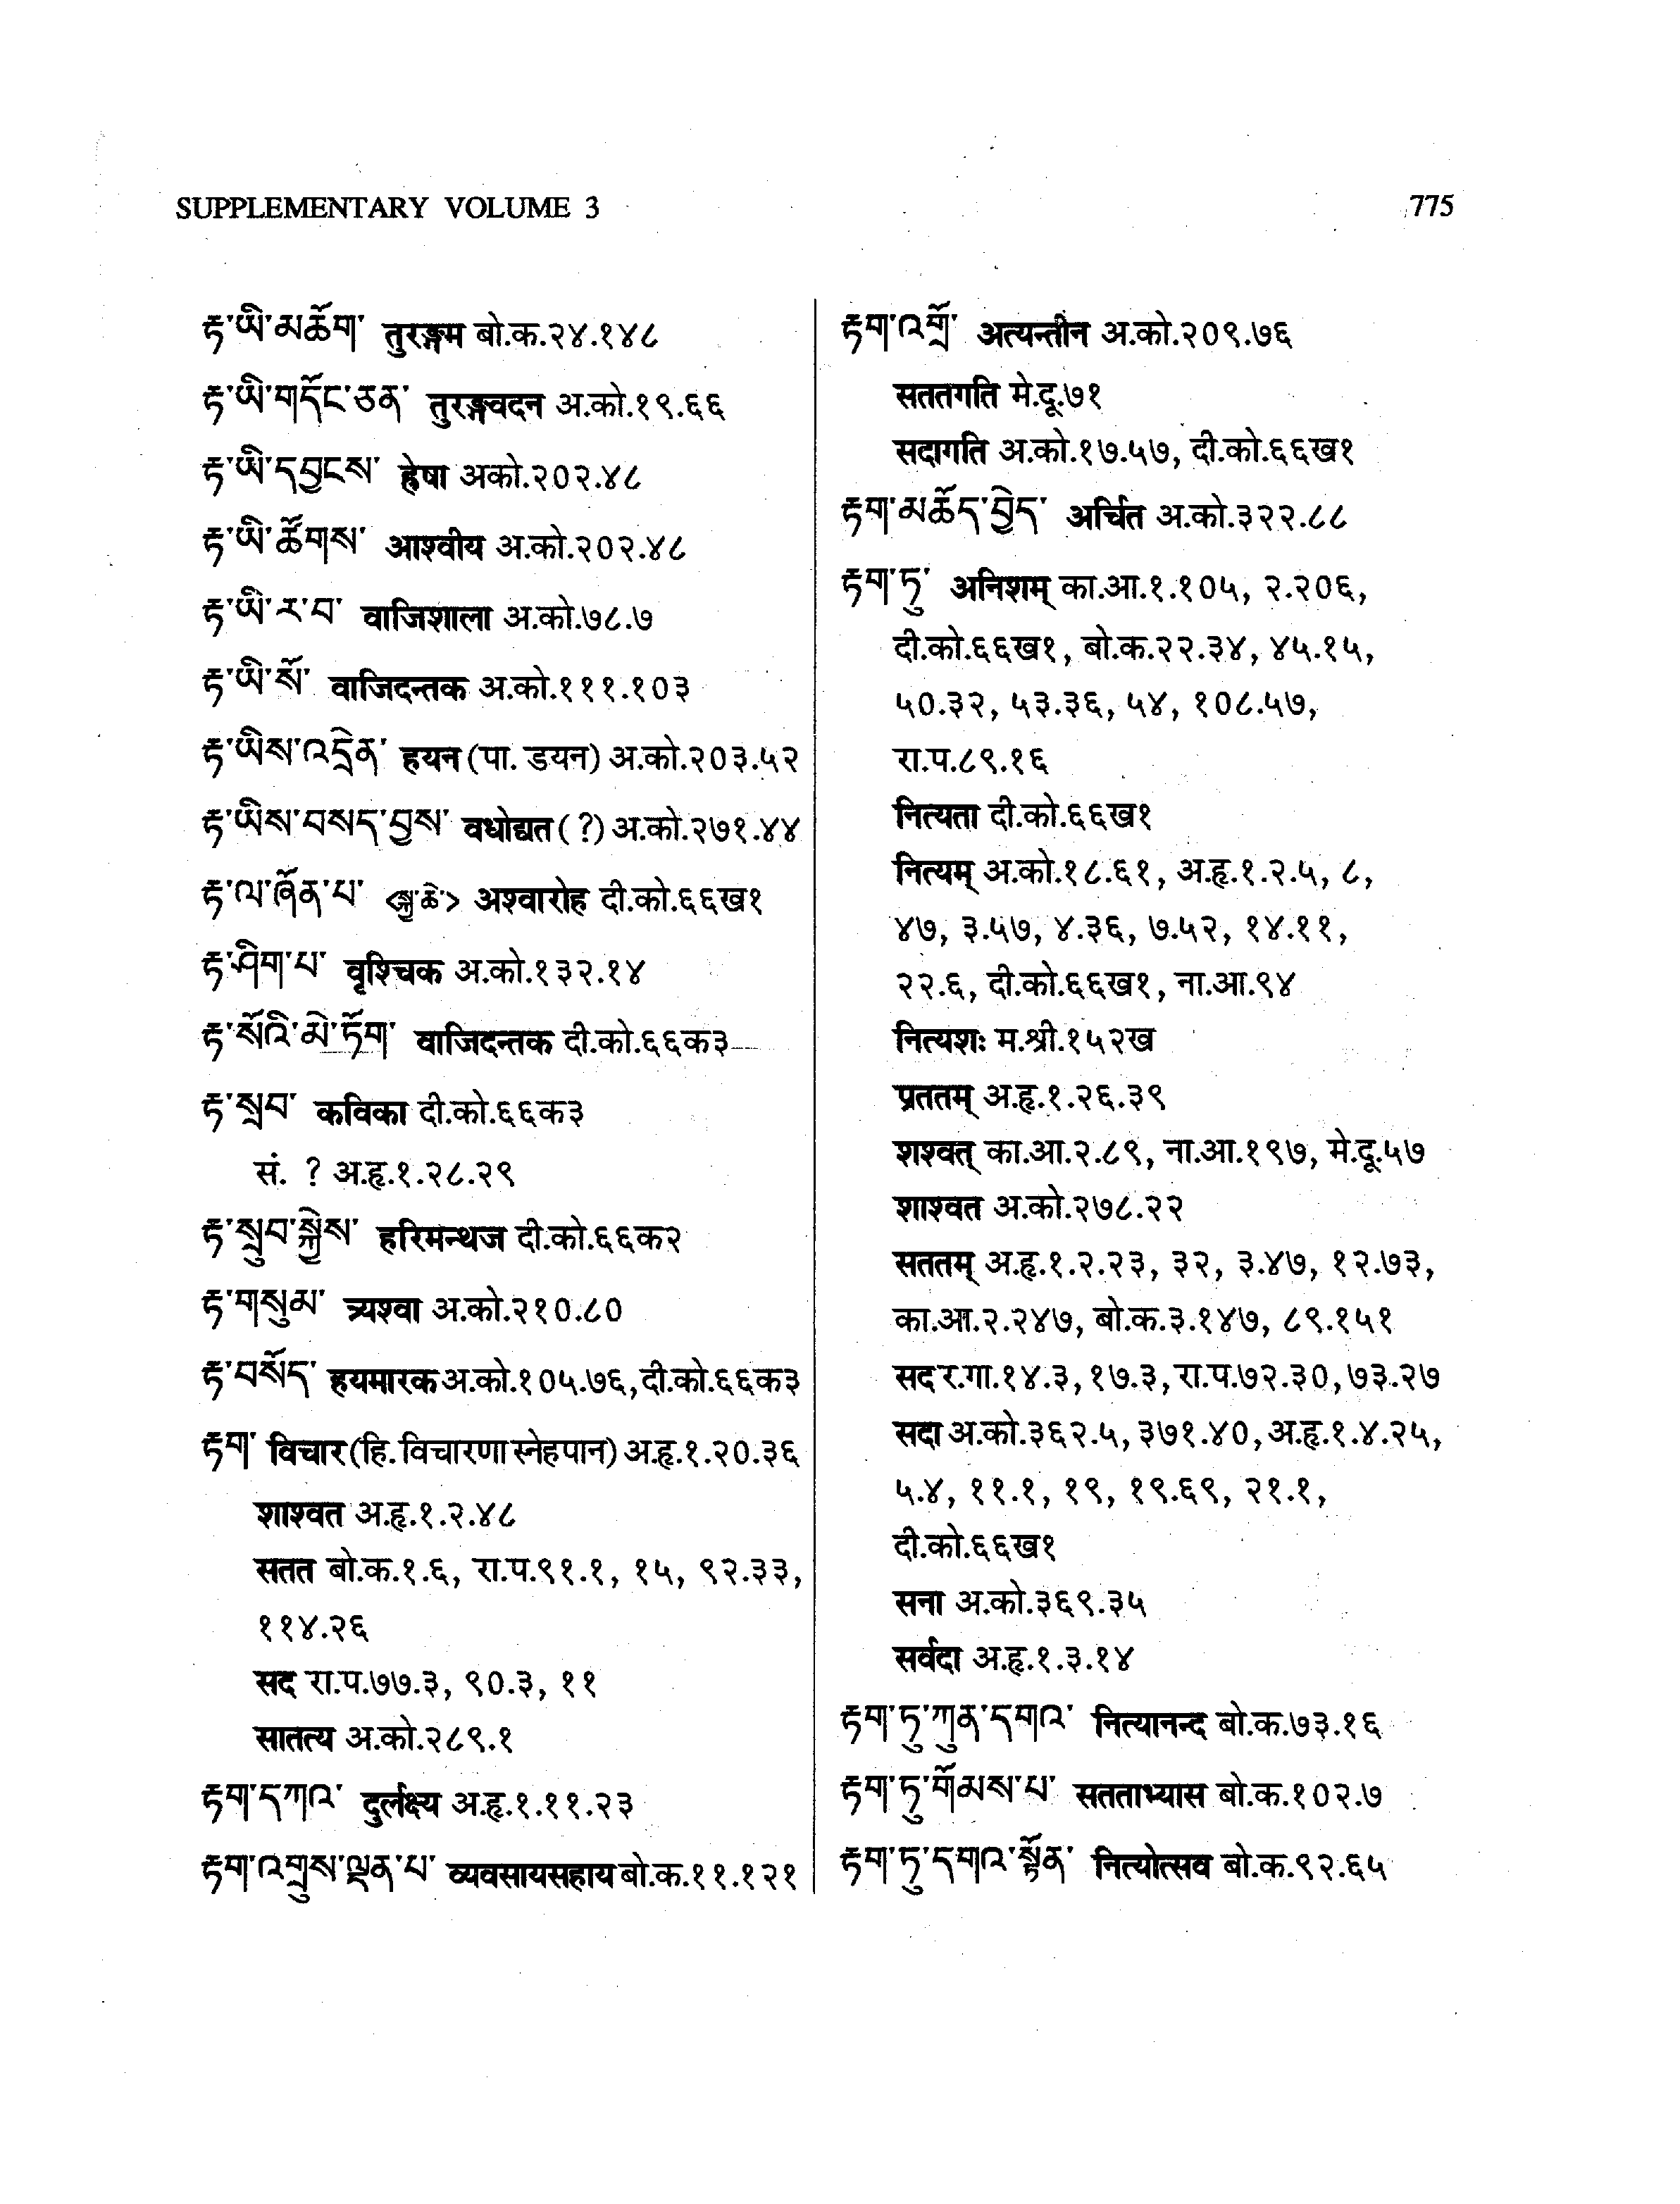 SUPPLEMENTARY VOLUME 3 775
རྟ་ཡི་མཆོག་ तुरङ्गम बो.क.२४.१४८
རྟ་ཡི་གདོང་ཅན་ तुरङ्गवदन अ.को.१९.६६
རྟ་ཡི་དབྱངས་ ह्रेषा अको.२०२.४८
རྟ་ཡི་ཚོགས་ आश्वीय अ.को.२०२.४८
རྟ་ཡི་ར་བ་ वाजिशाला अ.को.७८.७
རྟ་ཡི་སོ་ वाजिदन्तक अ.को.१११.१०३
རྟ་ཡིས་འདྲེན་ हयन (पा. डयन) अ.को.२०३.५२
རྟ་ཡིས་བསད་བྱས་ वधोद्यत (?) अ.को.२७१.४४
རྟ་ལ་ཞོན་པ་ <སྒྱུ་ཆེ་> अश्वारोह दी.को.६६ख१
རྟ་ཤིག་པ་ वृश्चिक अ.को.१३२.१४
རྟ་སོའི་མེ་ཏོག་ वाजिदन्तक दी.को.६६क३
རྟ་སྲབ་ कविका दी.को.६६क३
सं. ? अ.हृ.१.२८.२९
རྟ་སྲུབ་སྐྱེས་ हरिमन्थज दी.को.६६क२
རྟ་གསུམ་ त्र्यश्वा अ.को.२१०.८०
རྟ་བསོད་ हयमारक अ.को.१०५.७६, दी.को.६६क३
རྟག་ विचार (हि. विचारणा स्नेहपान) अ.हृ.१.२०.३६
शाश्वत अ.हृ.१.२.४८
सतत बो.क.१.६, रा.प.९१.१, १५, ९२.३३,
११४.२६
सद रा.प.७७.३, ९०.३, ११
सातत्य अ.को.२८९.१
རྟག་དཀའ་ दुर्लक्ष्य अ.हृ.१.११.२३
རྟག་འགྲུས་ལྡན་པ་ व्यवसायसहाय बो.क.११.१२१
རྟག་འགྲོ་ अत्यन्तीन अ.को.२०९.७६
सततगति मे.दू.७१
सदागति अ.को.१७.५७, दी.को.६६ख१
རྟག་མཆོད་བྱེད་ अर्चित अ.को.३२२.८८
རྟག་ཏུ་ अनिशम् का.आ.१.१०५, २.२०६,
दी.को.६६ख१, बो.क.२२.३४, ४५.१५,
५०.३२, ५३.३६, ५४, १०८.५७,
रा.प.८९.१६
नित्यता दी.को.६६ख१
नित्यम् अ.को.१८.६१, अ.हृ.१.२.५, ८,
४७, ३.५७, ४.३६, ७.५२, १४.११,
२२.६, दी.को.६६ख१, ना.आ.९४
नित्यशः म.श्री.१५२ख
प्रततम् अ.हृ.१.२६.३९
शश्वत् का.आ.२.८९, ना.आ.१९७, मे.दू.५७
शाश्वत अ.को.२७८.२२
सततम् अ.हृ.१.२.२३, ३२, ३.४७, १२.७३,
का.आ.२.२४७, बो.क.३.१४७, ८९.१५१
सद र.गा.१४.३, १७.३, रा.प.७२.३०, ७३.२७
सदा अ.को.३६२.५, ३७१.४०, अ.हृ.१.४.२५,
५.४, ११.१, १९, १९.६९, २१.१,
दी.को.६६ख१
सना अ.को.३६९.३५
सर्वदा अ.हृ.१.३.१४
རྟག་ཏུ་ཀུན་དགའ་ नित्यानन्द बो.क.७३.१६
རྟག་ཏུ་གོམས་པ་ सतताभ्यास बो.क.१०२.७
རྟག་ཏུ་དགའ་སྟོན་ नित्योत्सव बो.क.९२.६५